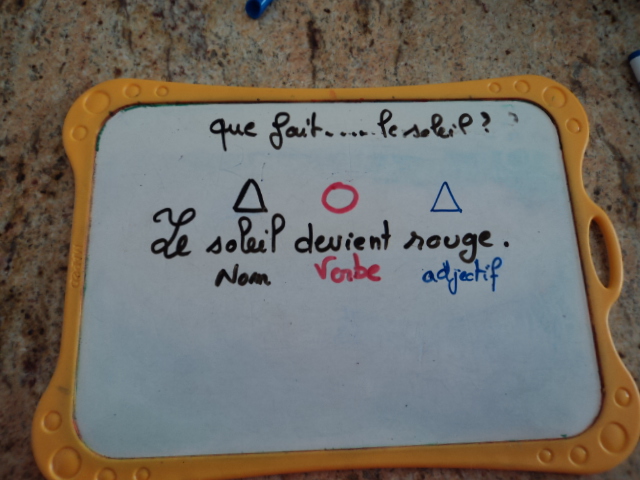 que fait.....le soleil ?
Le soleil devient rouge.
Nom Verbe adjectif